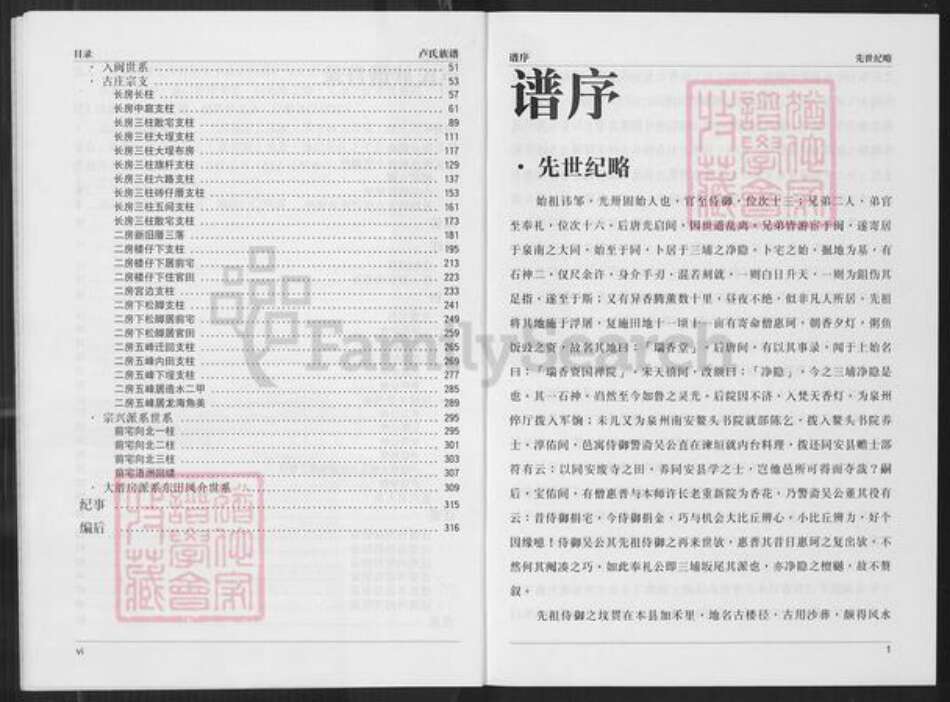 目录
卢氏族谱
· 入闽世系 51
· 古庄宗支 53
长房长柱 57
长房中庭支柱 61
长房三柱敝宅支柱 89
长房三柱大埕支柱 111
长房三柱大埕布房 117
长房三柱旗杆支柱 129
长房三柱六路支柱 137
长房三柱砖仔厝支柱 153
长房三柱五间支柱 161
长房三柱敝宅支柱 173
二房新旧厝三落 181
二房楼仔下支柱 195
二房楼仔下居前宅 213
二房楼仔下住官田 223
二房宫边支柱 233
二房下松脚支柱 241
二房下松脚居前宅 249
二房下松脚居官田 259
二房五峰迁回支柱 265
二房五峰向田支柱 269
二房五峰下埕支柱 277
二房五峰居造水二甲 285
二房五峰居龙海角美 289
· 宗兴派系世系 295
前宅向北一柱 295
前宅向北二柱 301
前宅向北三柱 303
前宅浯洲回禧 307
· 大厝房派系东田凤介世系 309
纪事 315
编后 316
vi
谱序
先世纪略
谱序
· 先世纪略
始祖讳邹，光州固始人也，官至侍御，位次十三；兄弟二人，弟官
至奉礼，位次十六。后唐光启间，因世道乱离，兄弟皆游宦于闽，遂寄居
于泉南之大同，始至于同，卜居于三埔之净隐。卜宅之始，掘地为基，有
石神二，仅尺余许，身介手刃，混若刻就，一则白日升天，一则为鉏伤其
足指，遂至于斯；又有异香腾薰数十里，昼夜不绝，似非凡人所居。先祖
将其地施于浮屠，复施田地十一顷十一亩有寄命僧惠珂，朝香夕灯，粥鱼
饭豉之资，故名其地曰：「瑞香堂」，后唐间，有以其事录，闻于上始名
曰：「瑞香资国禅院」。宋天禧间，改额曰：「净隐」。今之三埔净隐是
也。其一石神，岿然至今如鲁之灵光。后院因不济，入梵天香灯，为泉州
倅厅拨入军饷；未几又为泉州南安鳌头书院就部陈乞，拨入鳌头书院养
士，淳佑间，邑寓侍御警斋吴公直在谏垣就内台料理，拨还同安县赡士部
符有云：以同安废寺之田，养同安县学之士，岂他邑所可得而夺哉？嗣
后，宝佑间，有僧惠普与本师许长老重新院为香花，乃警斋吴公董其役有
云：昔侍御捐宅，今侍御捐金，巧与机会大比丘辨心，小比丘辨力，好个
因缘噫！侍御吴公其先祖侍御之再来世欤，惠普其昔日惠珂之复出欤。不
然何其阄凑之巧。如此奉礼公即三埔坂尾其派也，亦净隐之檀樾，故不赘
叙。
先祖侍御之坟贯在本县加禾里，地名古楼径，古用沙葬，颇得风水
1